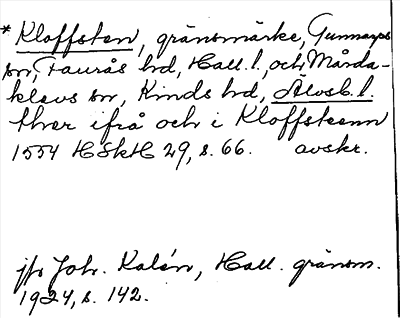 * Kloffsten, gränsmärke, Gunnarps
sn, Faurås hd, Hall. l., och Mårda-
klevs sn, Kinds hd, Älvsb. l.
thær ifrå och i Kloffsteenn
1554 HSkH 29, s. 66. avskr.
jfr Joh. Kalén, Hall. gränsm.
1924, s. 142.